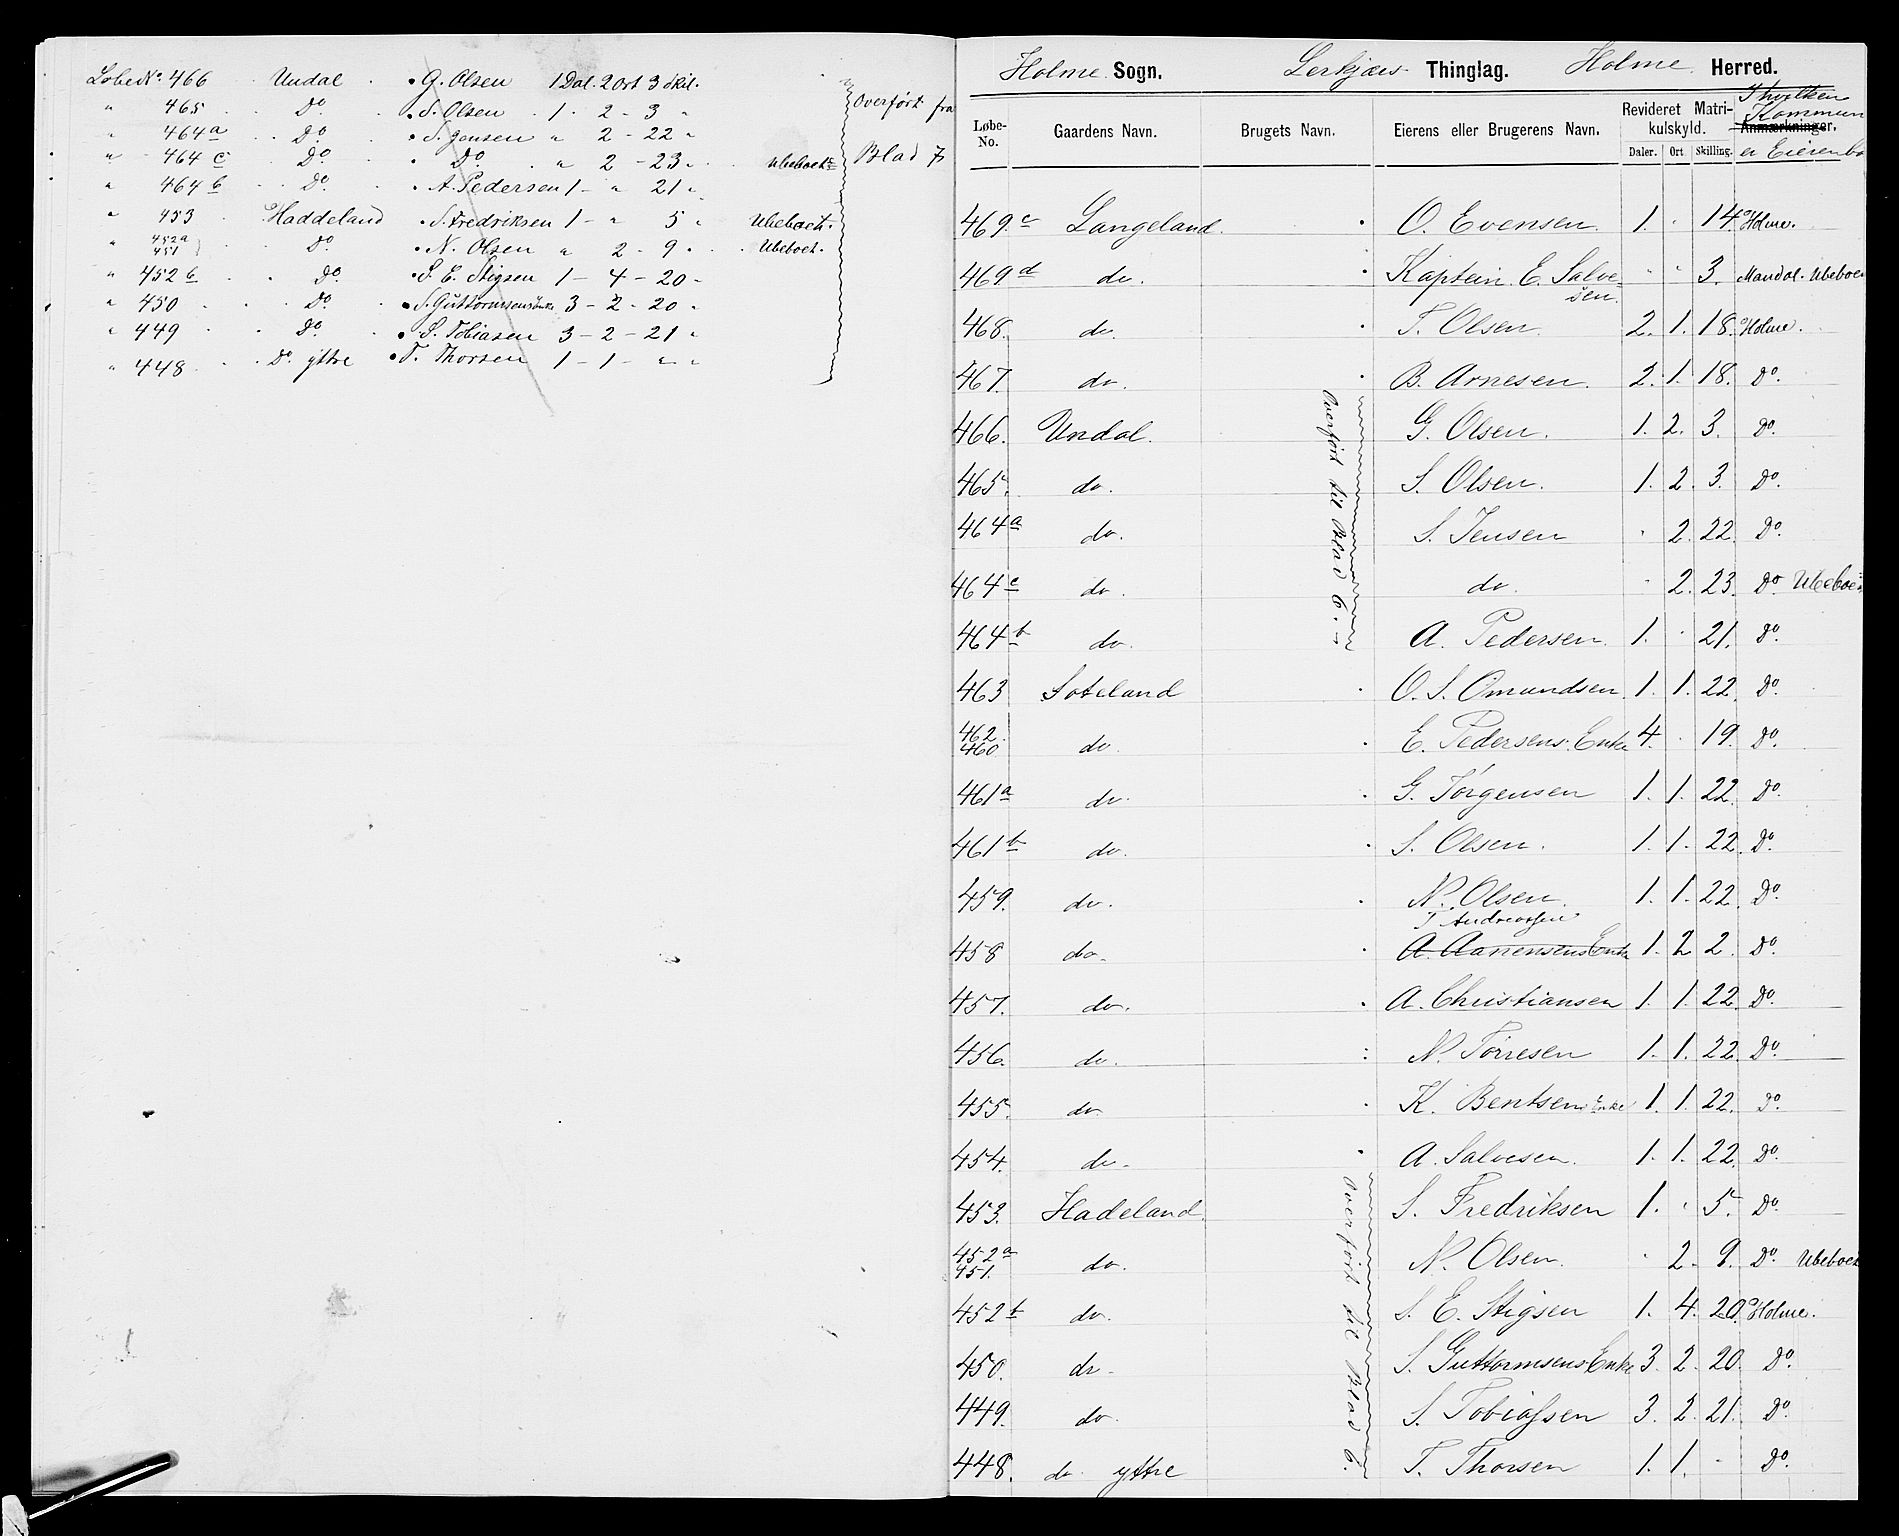 LøbeNo. 466 Undal G. Olsen 1 Dal. 2 Ort 3 Skil.
" 465 Do S. Olsen 1 - 2 - 3 "
" 464a Do S. Jensen " 2 - 22 "
" 464c Do Do " 2 - 23 " Ubeboet
" 464b Do A. Pedersen 1 - " 21 "
" 453 Haddeland S. Fredriksen 1 - " 5 " Ubeboet.
" 452a 451 Do N. Olsen " 2 - 9 " Ubeboet.
" 452b Do S. E. Stigsen 1 - 4 - 20 -
" 450 Do S. Guttormsens Enke 3 - 2 - 20 "
" 449 Do S. Tobiasen 3 - 2 - 21 "
" 448 Do. yttre T. Thorsen 1 - 1 - " "
Overført fra
Blad 7
Holme Sogn. Lerkjærs Thinglag. Holme Herred.
Løbe-No. Gaardens Navn. Brugets Navn. Eierens eller Brugerens Navn. Revideret Matri-kulskyld. Anmærkninger.
Daler. Ort Skilling.
Hvilken
Kommun
er Eieren bo
469c Langeland O. Evensen 1. " 14 Holme.
469d do. Kaptein E. Salve-
sen. " " 3. Mandal. Ubeboe
468. do. T. Olsen 2. 1. 18. Holme.
467. do. B. Arnesen. 2. 1. 18. Do.
466. Undal. G. Olsen. 1. 2. 3. Do.
465. do. S. Olsen. 1. 2. 3. Do.
464a do. S. Jensen " 2. 22. Do.
464c do. do. " 2. 23. Do Ubeboe
464b do. A. Pedersen. 1. " 21. Do.
463 Soteland O. S. Omundsen 1. 1. 22. Do.
462. 460 do. E. Pedersens Enke 4. " 19. Do.
461a do. G. Jørgensen 1. 1. 22. Do.
461b do. S. Olsen. 1. 1. 22. Do.
459. do. N. Olsen. 1. 1. 22. Do.
T Andreassen
458 do. A. Aanensens Enke 1. 2 2. Do.
457. do. A. Christiansen 1. 1. 22. Do.
456. do. N. Tørresen 1. 1. 22. Do.
455. do. K. Bentsens Enke 1. 1. 22. Do.
454. do. A. Salvesen. 1. 1. 22. Do.
453. Hadeland. S. Fredriksen 1. " 5. Do.
452a 451. do. N. Olsen. " 2. 9. Do. Ubeboet
452b do. S. E. Stigsen 1. 4. 20. Holme.
450. do. S. Guttormsens Enke 3. 2. 20. Do.
449. do. S. Tobiassen 3. 2. 21. Do.
448. do. yttre T. Thorsen 1. 1. - Do.
Overført til Blad 6.
Overført til Blad 6.